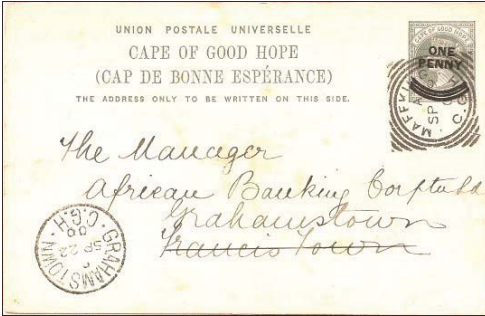 UNION POSTALE UNIVERSELLE
CAPE OF GOOD HOPE
(CAP DE BONNE ESPÉRANCE)
THE ADDRESS ONLY TO BE WRITTEN ON THIS SIDE.
CAPE OF GOOD HOPE
ONE
PENNY
MAFEKING
SP
C.G.H
The Manager
African Banking Corptn Ld
Grahamstown
Francis Town
GRAHAMSTOWN
SP 22
00
C.G.H.